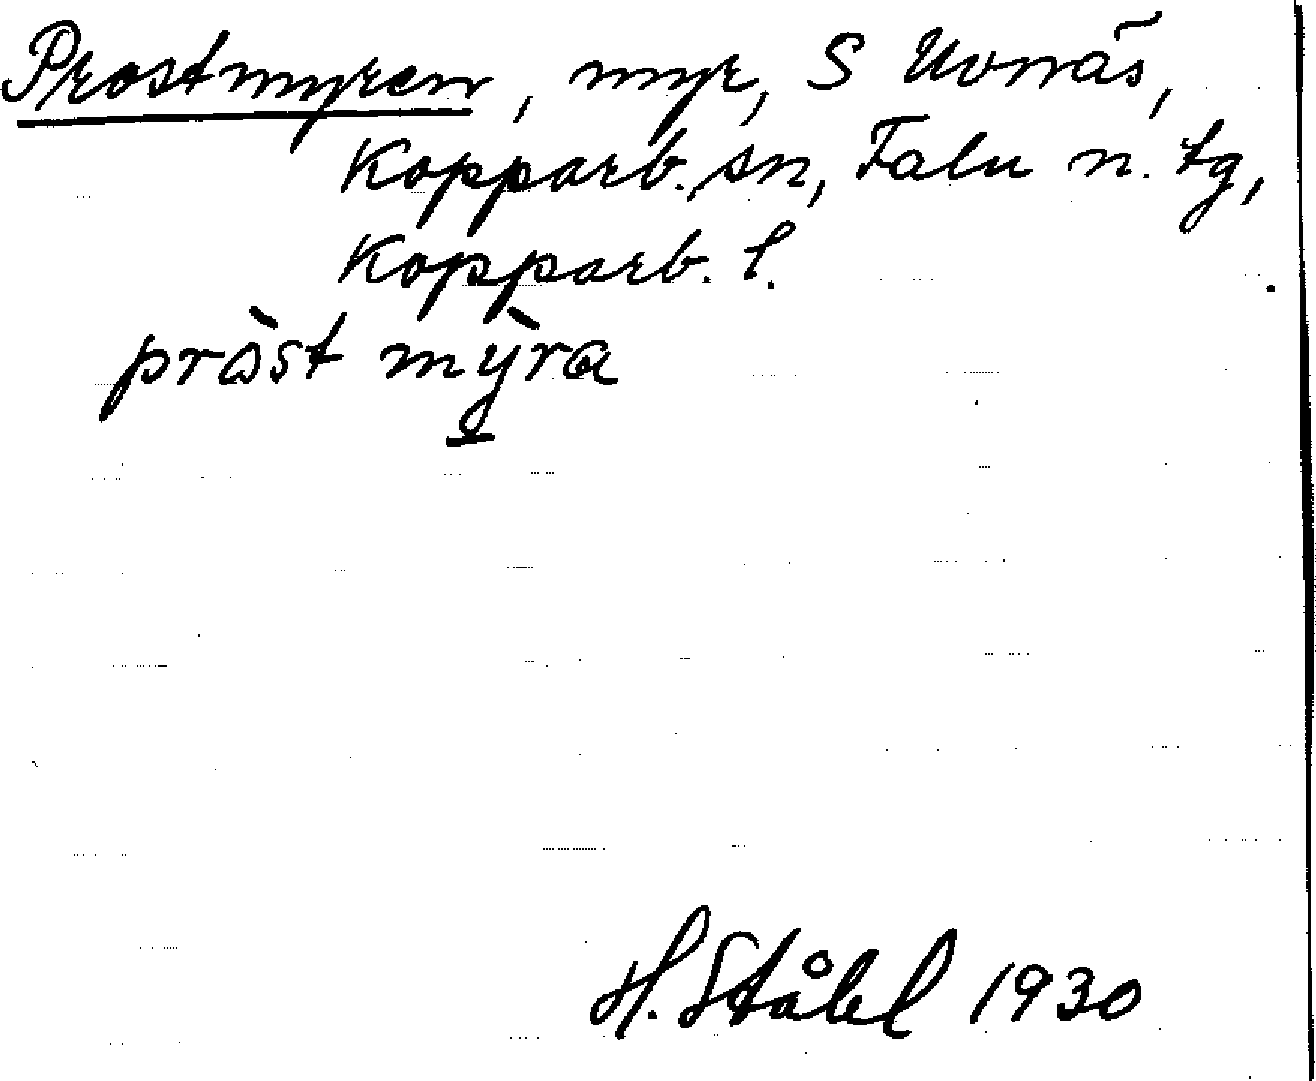 Prostmyren, myr, S Uvnäs,
Kopparb. sn, Falu n. tg,
Kopparb. l.
pròst mỳra
H. Ståhl 1930